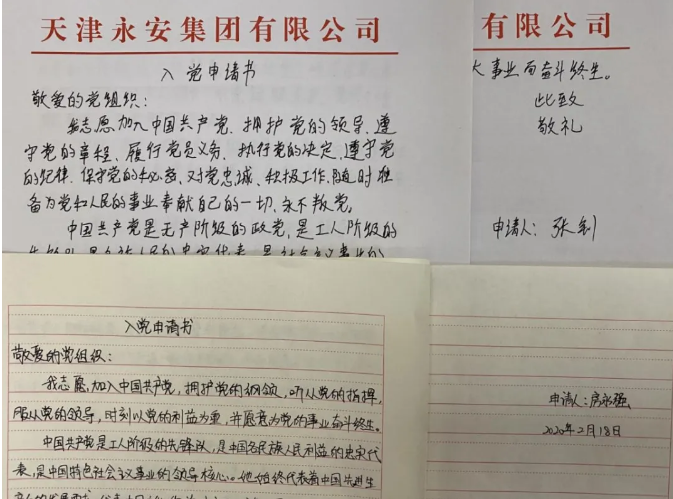 天津永安集团有限公司
入党申请书
敬爱的党组织：
我志愿加入中国共产党，拥护党的领导、遵
守党的章程、履行党员义务、执行党的决定、遵守党
的纪律、保守党的秘密、对党忠诚、积极工作、随时准
备为党和人民的事业奉献自己的一切、永不叛党。
中国共产党是无产阶级的政党，是工人阶级的
有限公司
大事业而奋斗终生。
此致
敬礼
申请人：张钊
入党申请书
敬爱的党组织：
我志愿加入中国共产党，拥护党的纲领，听从党的指挥，
服从党的领导，时刻以党的利益为重，并愿意为党的事业奋斗终生。
中国共产党是工人阶级的先锋队，是中国各民族人民利益的忠实代
表，是中国特色社会主义事业的领导核心。他始终代表着中国先进生
申请人：房永强
2020年2月18日